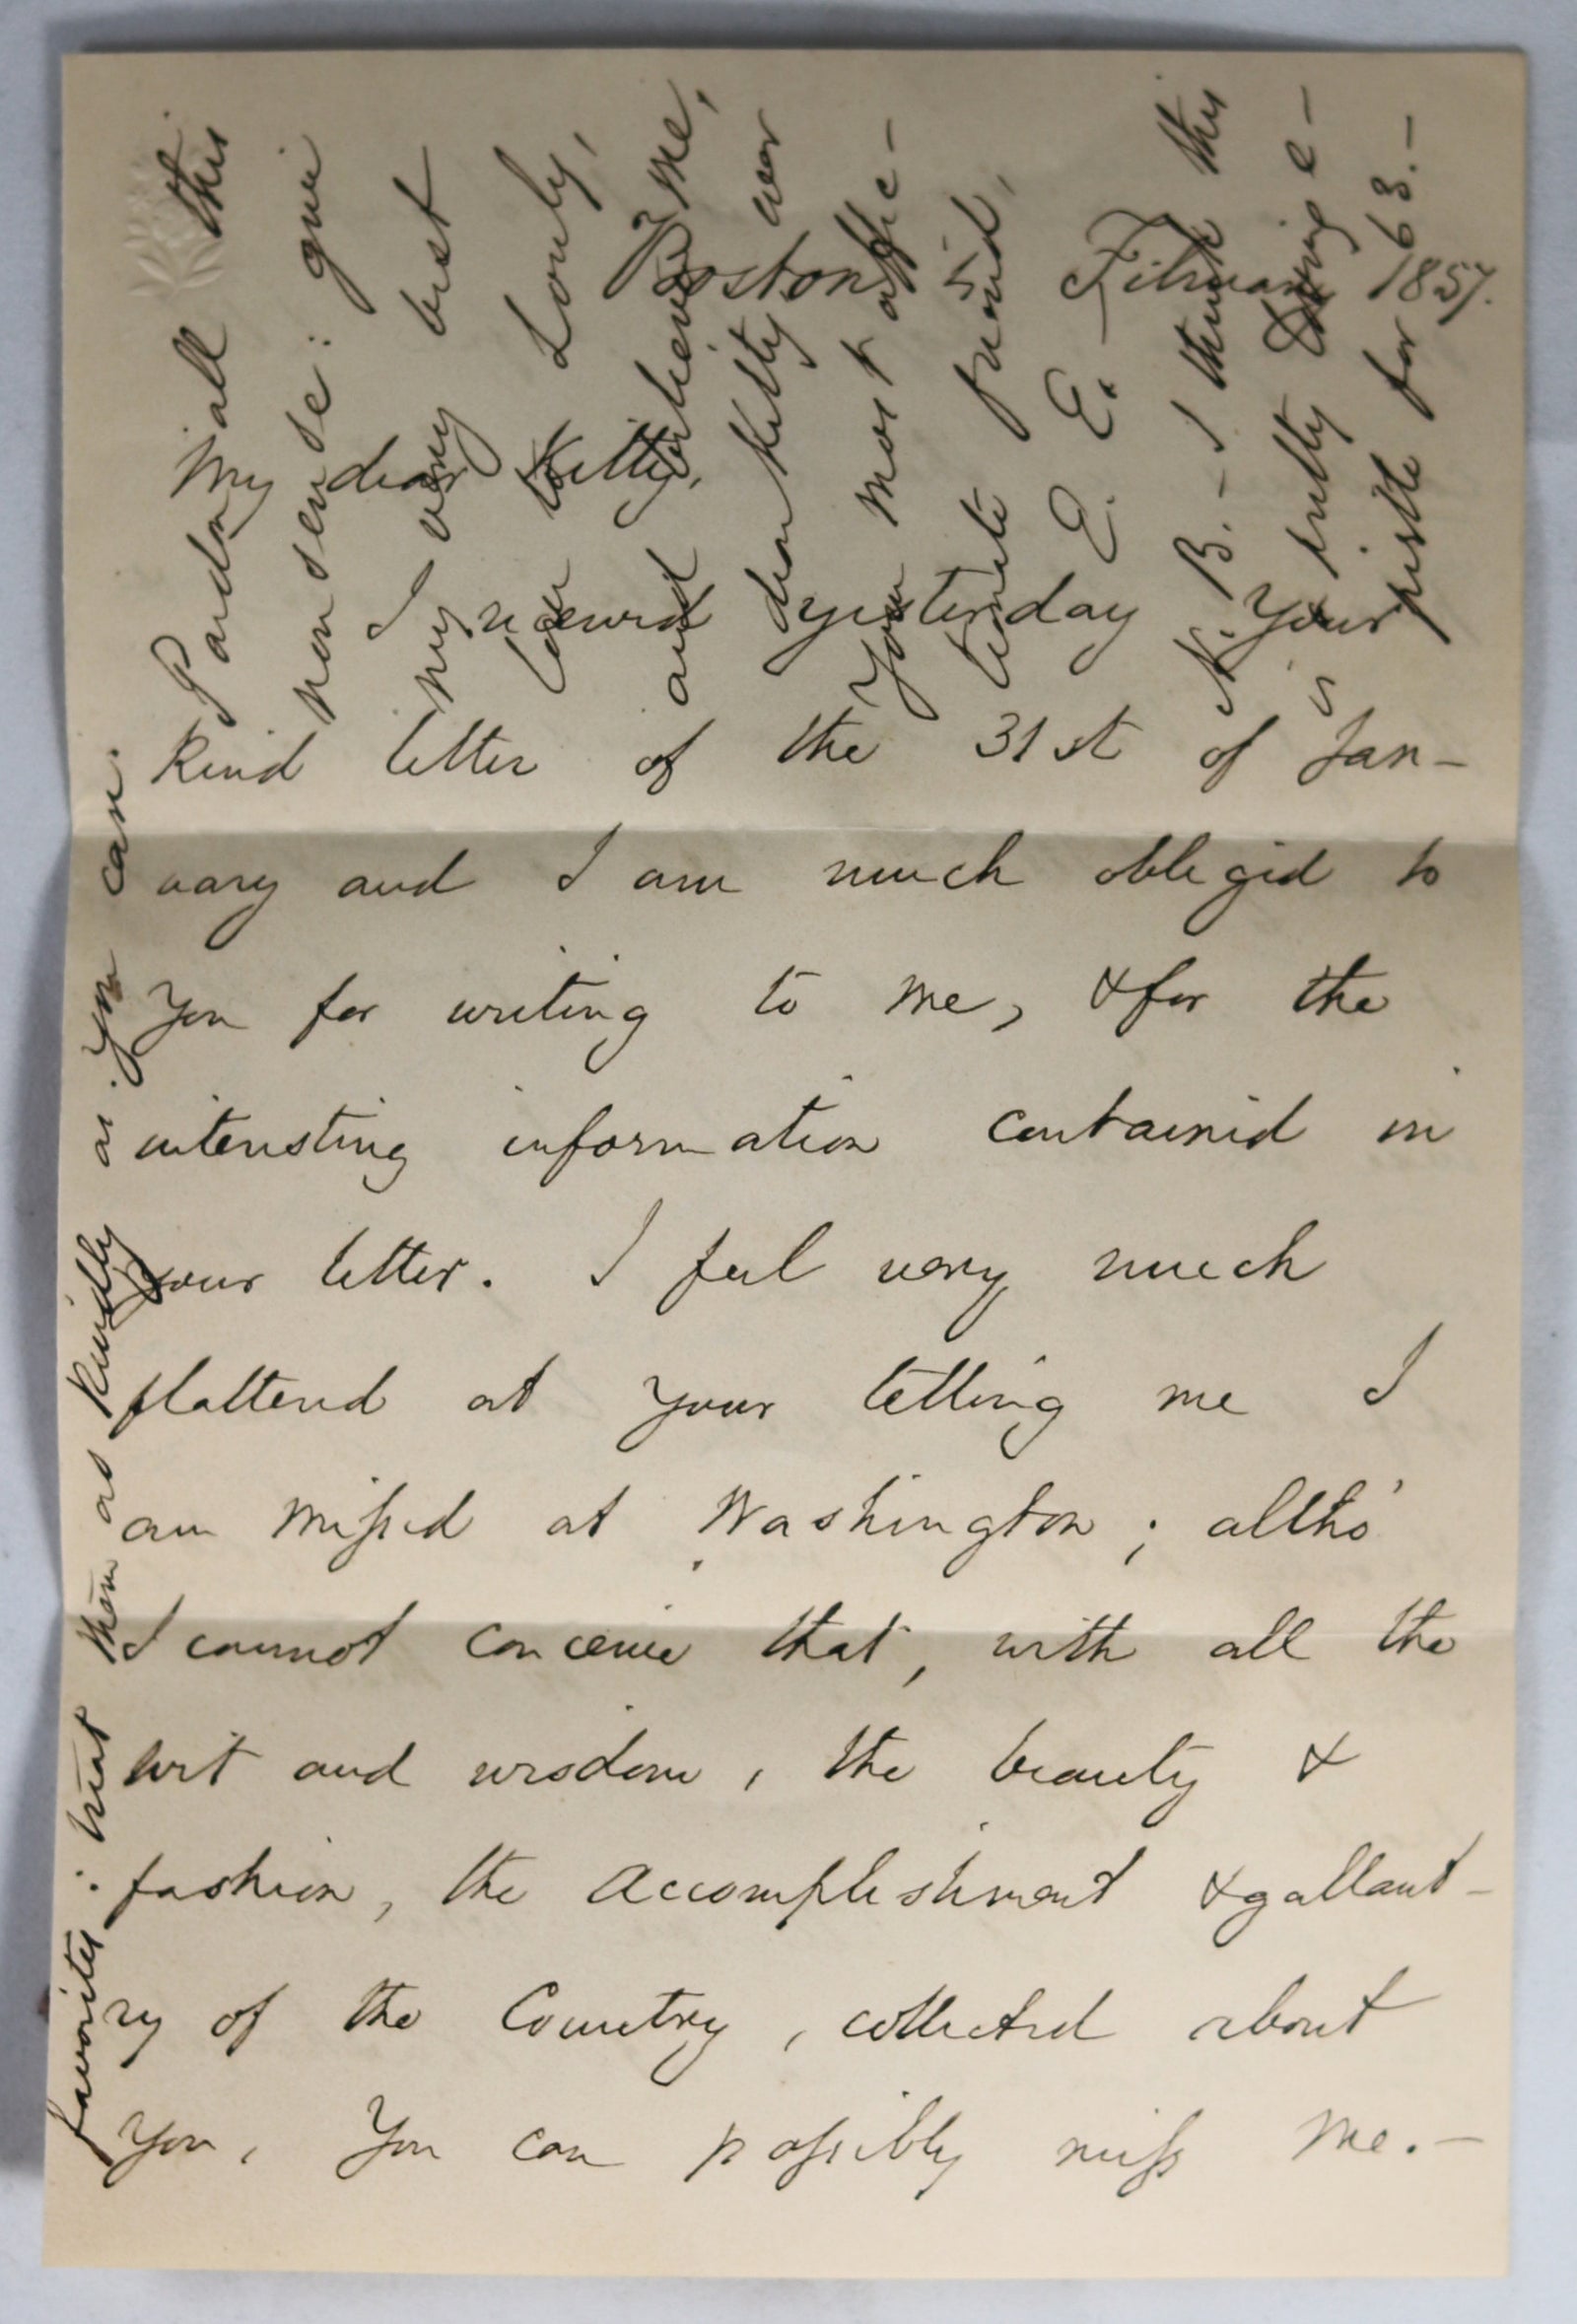 Boston 5 February 1857.
My dear Kitty,
I received yesterday your
kind letter of the 31st of Jan-
uary and I am much obliged to
you for writing to me, & for the
interesting information contained in
your letter. I feel very much
flattered at your telling me I
am missed at Washington; altho'
I cannot conceive that, with all the
wit and wisdom, the beauty &
fashion, the accomplishment & gallant-
ry of the Country, collected about
you, you can possibly miss me.—
favorites: treat them as kindly as you can.
Pardon all this
nonsense: give
my very best
love to Louly,
and believe me,
dear Kitty ever
your most affec-
tionate friend,
E. E.
N. B. - I think this
is pretty
pistle for 63.—